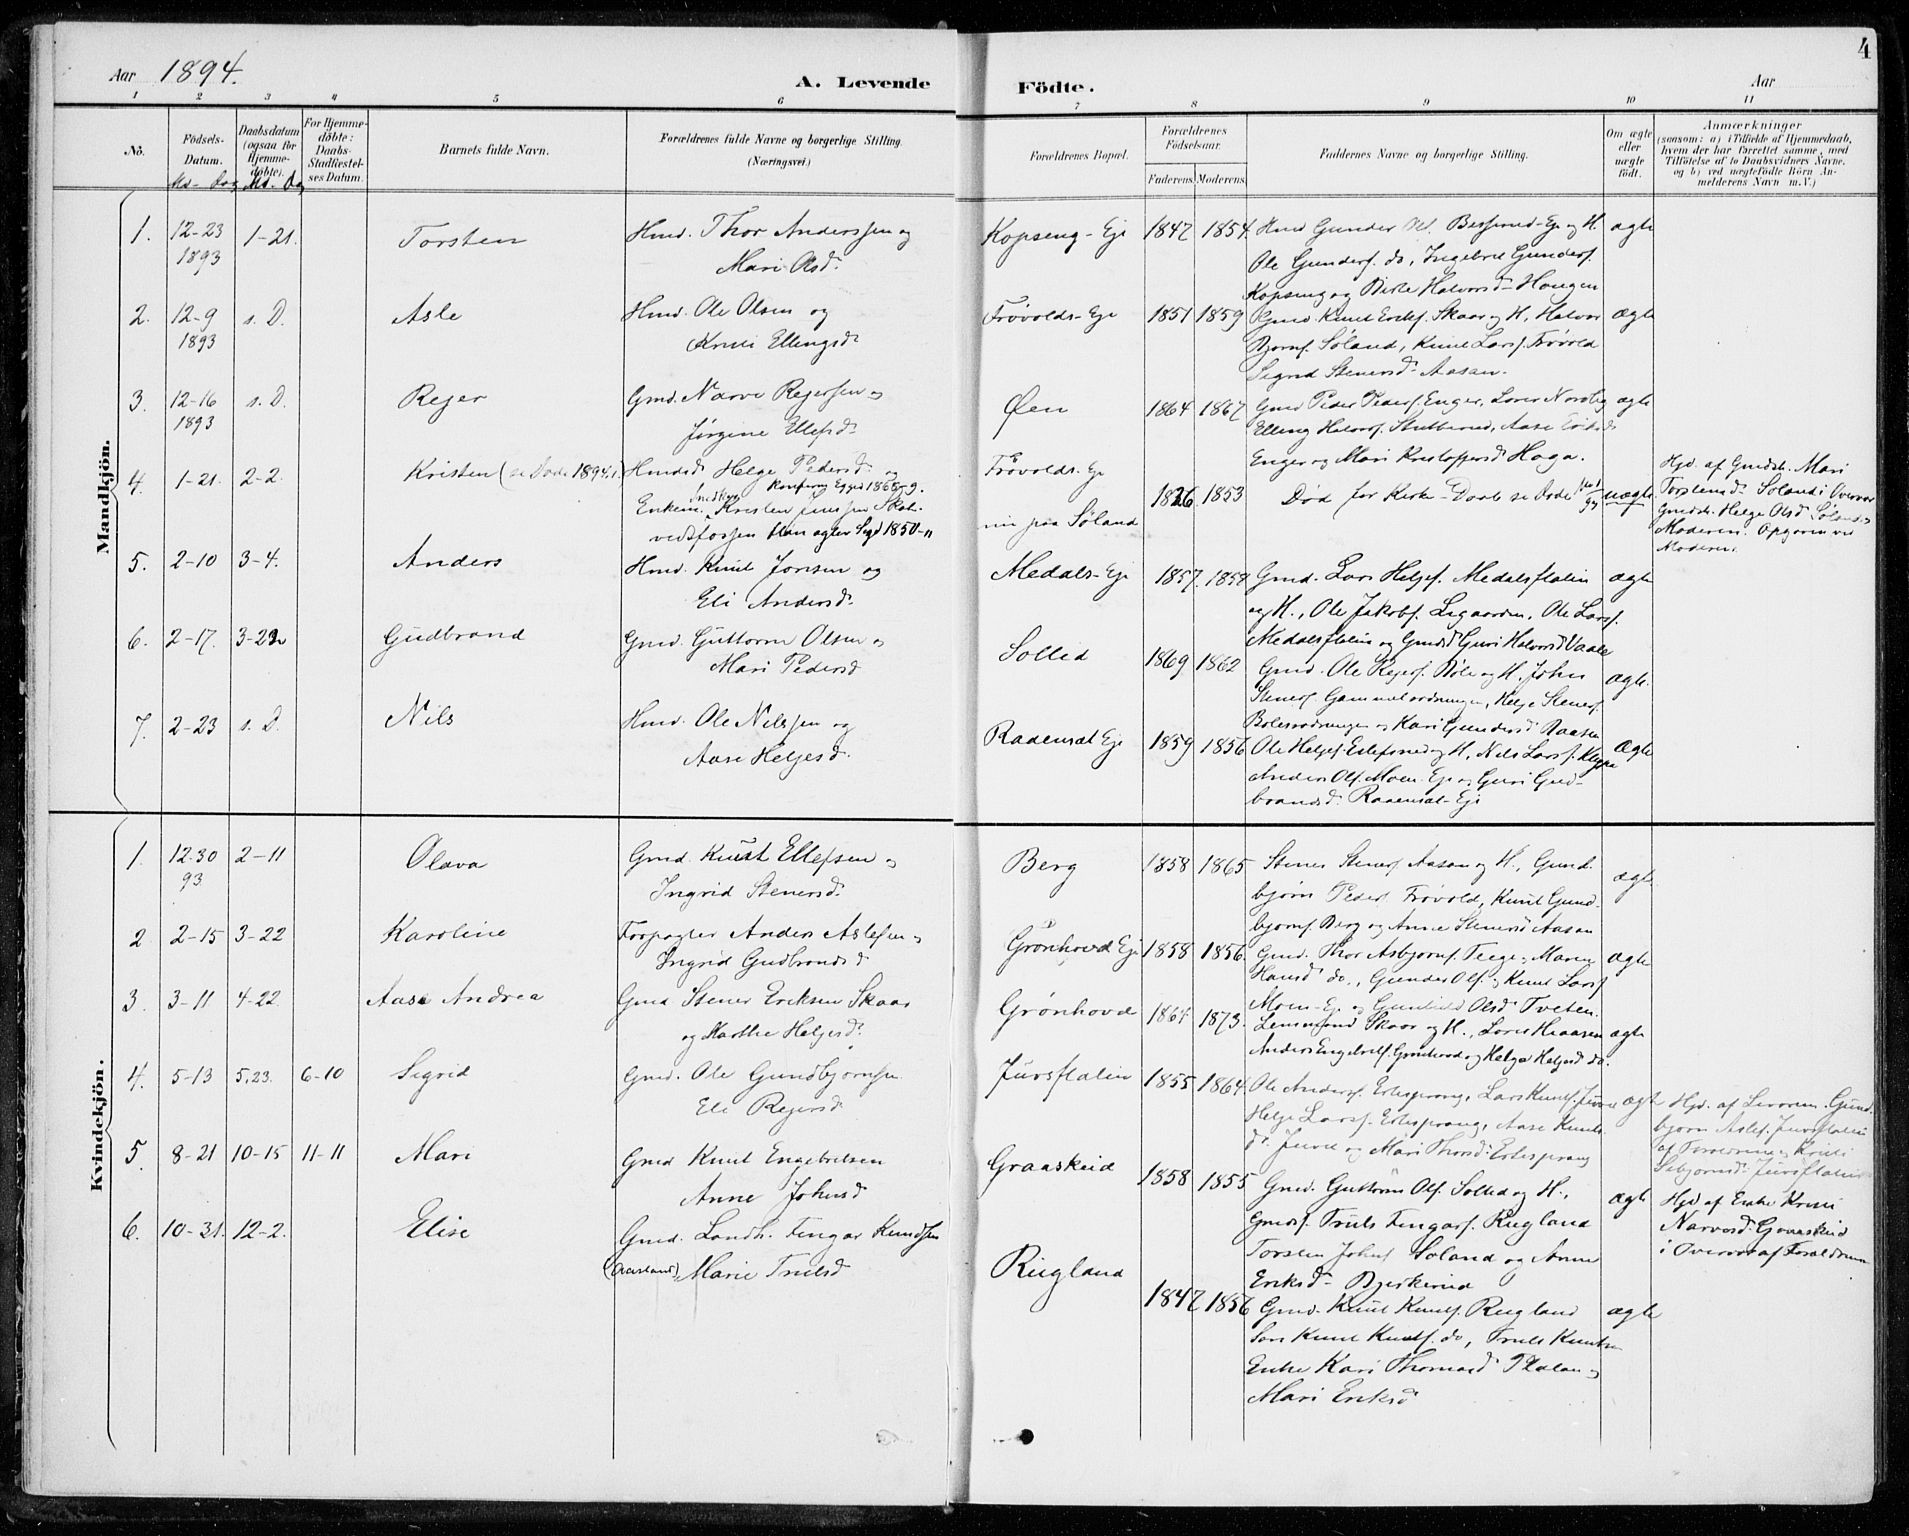 Aar 1894.
A. Levende
Födte.
Aar
4
1 2 3 4 5 6 7 8 9 10 11
No.
Födsels-Datum.
Md- Dag
Daabsdatum (ogsaa for Hjemmedöbte).
Md. Dag
For Hjemmedöbte: Daabs-Stadfæstelses Datum.
Barnets fulde Navn.
Forældrenes fulde Navne og borgerlige Stilling.
(Næringsvei.)
Forældrenes Bopæl.
Forældrenes Födselsaar.
Faderens. Moderens.
Faddernes Navne og borgerlige Stilling.
Om ægte eller uægte födt.
Anmærkninger
(saasom: a) i Tilfælde af Hjemmedaab, hvem der har forrettet samme, med Tilföielse af to Daabsvidners Navne, og b) ved uægtefödte Börn Anmelderens Navn m. V.)
Mandkjön.
1. 12-23 1893 1-21. Torsten Hmd. Thor Anderssen og Mari Olsd. Kopseng-Eje 1847 1854. Hmd Gunder Bessrud-Eje og H. ægte
Ole Gundersf. do, Ingebret Gundersf.
Kopseng og Birte Halvorsd. Haugen
2. 12-9 1893 s. D. Asle Hmd. Ole Olsen og Kristi Ellingsd. Frøvolds-Eje 1851 1859 Gmd Knut Erikss. Skaar og H, Halvor ægte
Bjørnsf. Søland, Knut Larsf. Frøvold
Sigrid Stenersd. Aasan.
3. 12-16 1893 s. D. Rejer Gmd. Narve Rejersen og Jørgine Ellefsd. Øen 1864 1867 Gmd Peder Pedersf. Enger, Lærer Nordby ægte
Elling Halvorsf. Stubberud, Aase Eriksd
Enger og Mari Kristoffersd Haga.
4. 1-21. 2-2. Kristen (se Døde 1894.1.) Hmdsd Helge Pedersd og
Enkem. Kristen Jenssen
Frøvolds-Eje
nu paa Søland 1826 1853 Død før Kirke-Daab se Døde uægte
Hjd. af Gmdsk. Mari
Torstensd. Søland i Overvær
Gmdsk. Helge Olsd Søland
Moderen. Opgaven ved
Moderen.
5. 2-10 3-4. Anders Hmd. Knut Jonsen og Eli Andersd. Medals-Eje 1857. 1858 Gmd. Lars Helgesf. Medalsflaten ægte
og H., Ole Jakobsf. Ligaarden, Ole Larsf.
Medalsflaten og Gmdsd Guri Halvorsd Vaale
6. 2-17. 3-22 Gudbrand Gmd. Guttorm Olsen og Mari Pedersd Sollid 1869 1862 Gmd. Ole Rejersf. Bøle og H. John ægte.
Stenersf. Gammelordningen, Helge Stenersf.
og Kari Gundersd Aasen
7. 2-23 s. D. Nils Hmd. Ole Nilssen og Aase Helgesd. Raaensæt Eje 1859 1856 Ole Helgesf. og H, Nils Larsf. Ægte
Anders Olsf. Moen-Eje og Guri Gudbrandsd. Raaensæt-Eje
Kvindekjön.
1. 12-30 93 2-11 Olava Gmd. Knut Ellefsen og Ingrid Stenersd. Berg 1858 1865 Stener Stenersf. Aasan og H., Gundbjørn Pedersf. Frøvold, Knut Gundbjørnsf. Berg og Anne Stenersd Aasan ægte
2 2-15 3-22 Karoline Forpagter Anders Aslefsen og Ingrid Gudbrandsd Grønhovd Eje 1858 1856. Gmd. Thor Asbjørnsf. Teige, Maren ægte
Hansd do., Gunder Olsf. og Knut Larsf
Moen-Eje og Gunhild Olsd Tveten.
3 3-11 4-22 Aase Andrea Gmd Stener Eriksen Skaar og Marthe Helgesd. Grønhovd 1864 1873. Lensmand Skaar og H., ægte
Anders Engebretsf. Grønhovd og Helga Helgesd do.
4. 5-13 5.23. 6-10 Sigrid Gmd. Ole Gundbjørnsen Eli Rejersd. Juvsflaten 1855 1864. Ole Andersf. Ertesprang, Lars Knutsf. Juve ægte
Helge Larsf. Ertesprang, Aase Knutsd. Juve og Mari Thorsd. Ertesprang
Hjd. af Gundbjørn Aslesf. Juvsflaten
Juvsflaten
5. 8-21 10-15 11-11 Mari Gmd Knut Engebretsen Anne Johnsd Graaskeid 1858 1855 Gmd. Guttorm Olsf. Sollid og H., ægte
Gmdsf. Truls Fingarsf. Rugland
Torsten Johnsf Søland og Anne
Eriksd. Bjerkerud
Hjd af Enke Kristi
Narvesd. Graaskeid
i Overvær af Forældrene
6. 10-31. 12-2. Elise Gmd. Landh. Fingar Knudsen (Aasland) Marie Trulsd Rugland 1847 1856 Gmd. Knut Knutsf. Rugland ægte
Søn Knut Knutsf. do, Truls Knutsen
Enke Kari Thomasd
Mari Eriksd